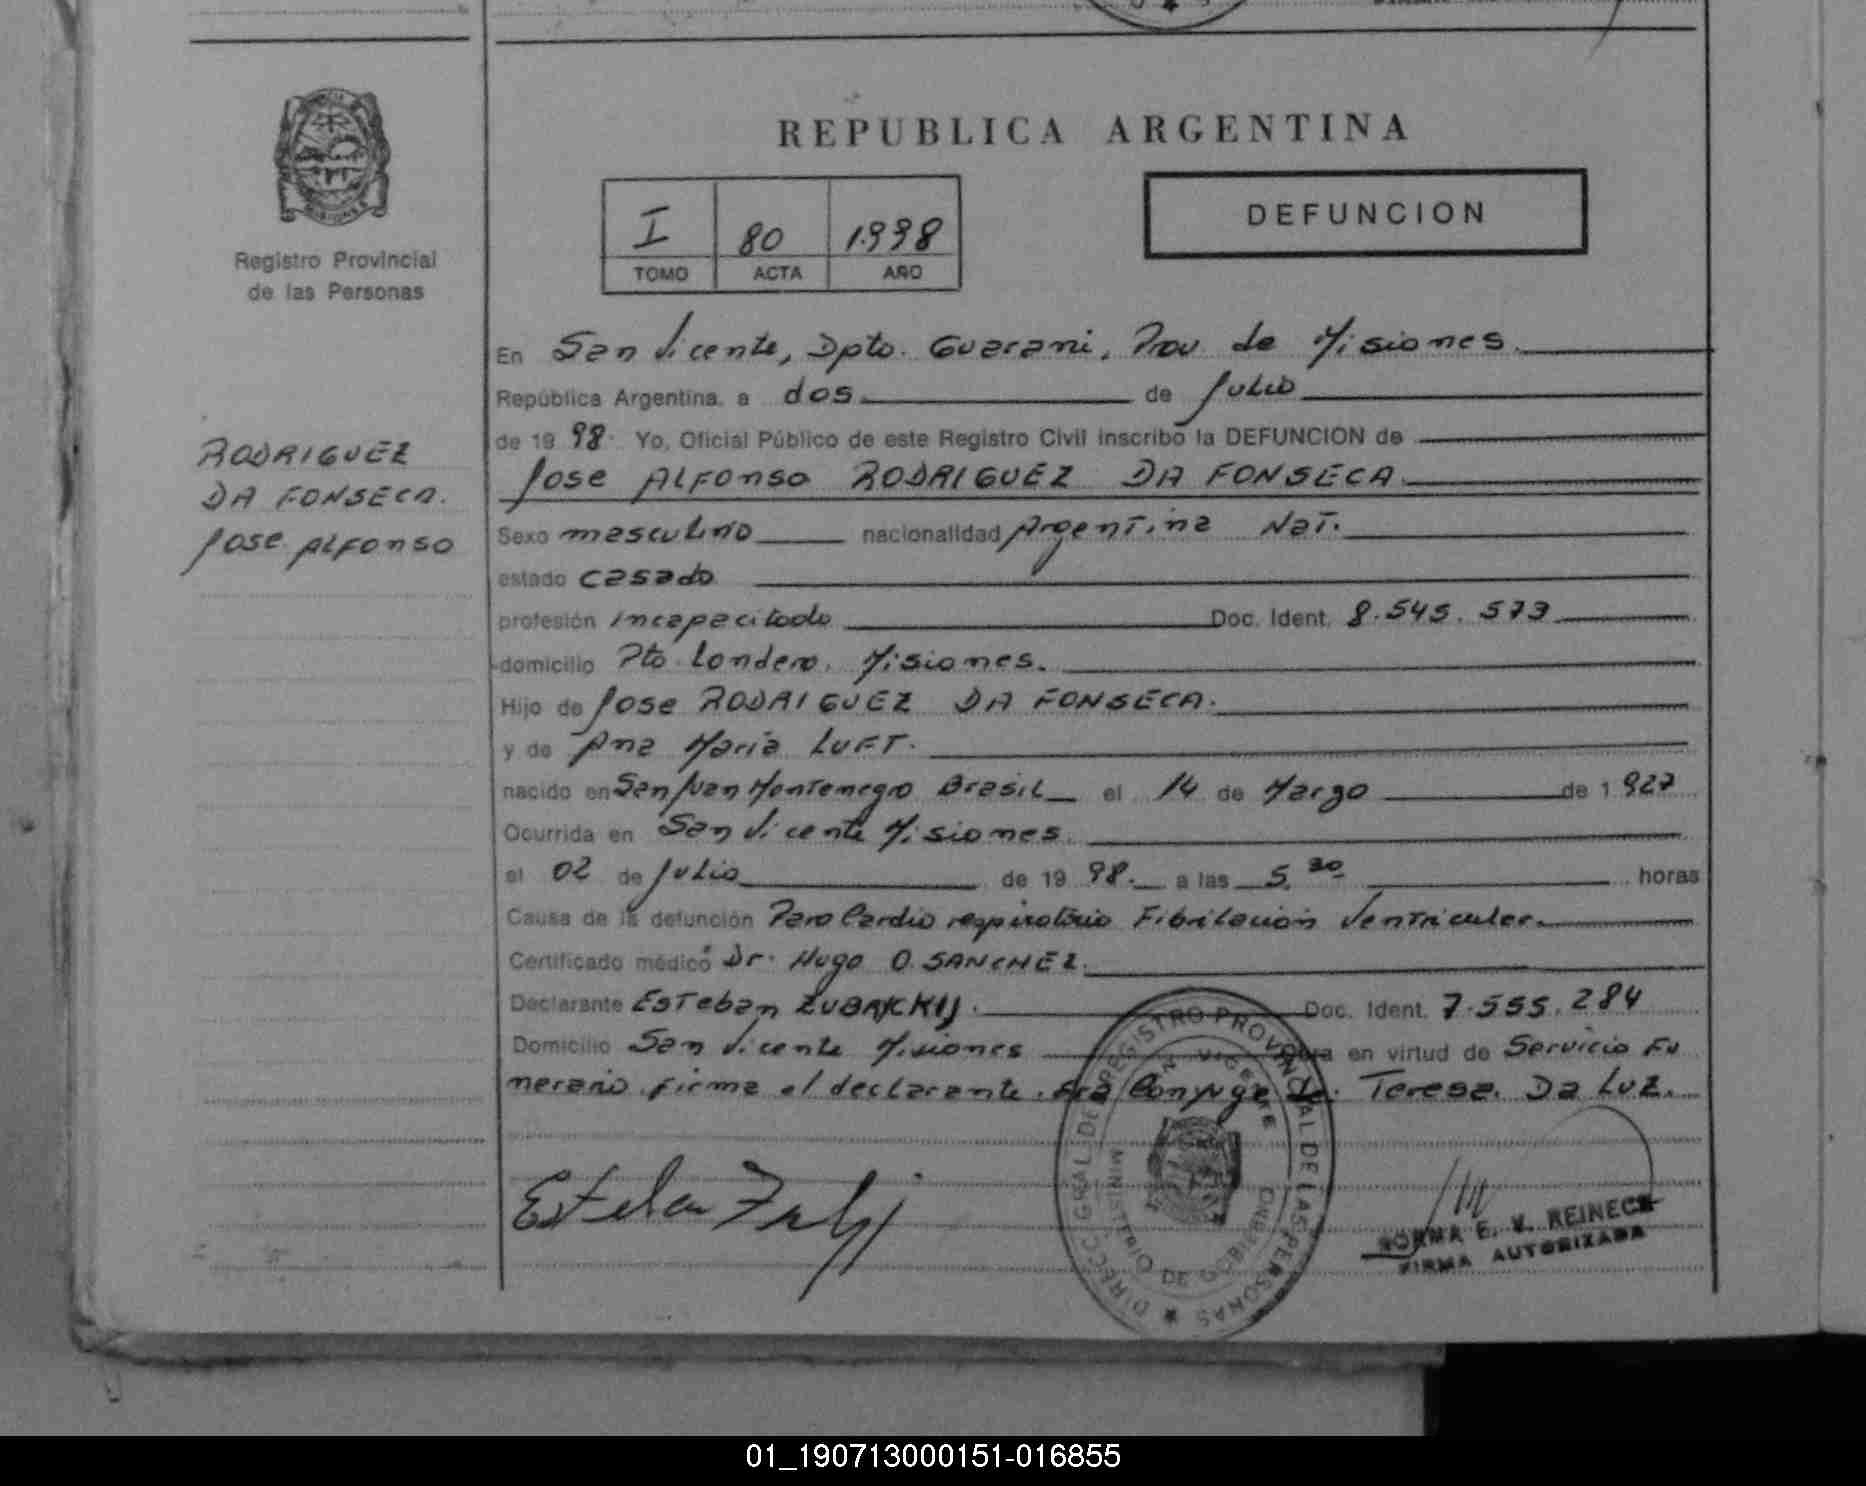 REPUBLICA ARGENTINA
I 80 1.998
TOMO ACTA AÑO
DEFUNCION
Registro Provincial
de las Personas
RODRIGUEZ
DA FONSECA.
Jose Alfonso
En San Vicente, Dpto. Guarani, Prov. de Misiones.
República Argentina, a dos de Julio
de 19 98. Yo, Oficial Público de este Registro Civil inscribo la DEFUNCION de
Jose Alfonso RODRIGUEZ DA FONSECA.
Sexo masculino nacionalidad Argentina Nat.
estado casado
profesión incapacitado Doc. Ident. 8.545.573
domicilio Pto. Londero. Misiones.
Hijo de Jose RODRIGUEZ DA FONSECA.
y de Ana Maria LUFT.
nacido en San Juan Montenegro Brasil el 14 de Marzo de 1 927
Ocurrida en San Vicente Misiones.
el 02 de Julio de 19 98. a las 5,30 horas
Causa de la defunción Paro Cardio respiratorio Fibrilacion Ventricular.
Certificado médico Dr. Hugo O. SANCHEZ.
Declarante Esteban ZUBRYCKIJ. Doc. Ident. 7.555.284
Domicilio San Vicente Misiones Obra en virtud de Servicio Fu
nerario. firma el declarante. Era Conyuge de: Teresa. Da Luz.
DIRECC. GRAL. DE REGISTRO PROVINCIAL DE LAS PERSONAS
SAN VICENTE
MINISTERIO DE GOBIERNO
NORMA E. V. REINECK
FIRMA AUTORIZADA
01_190713000151-016855